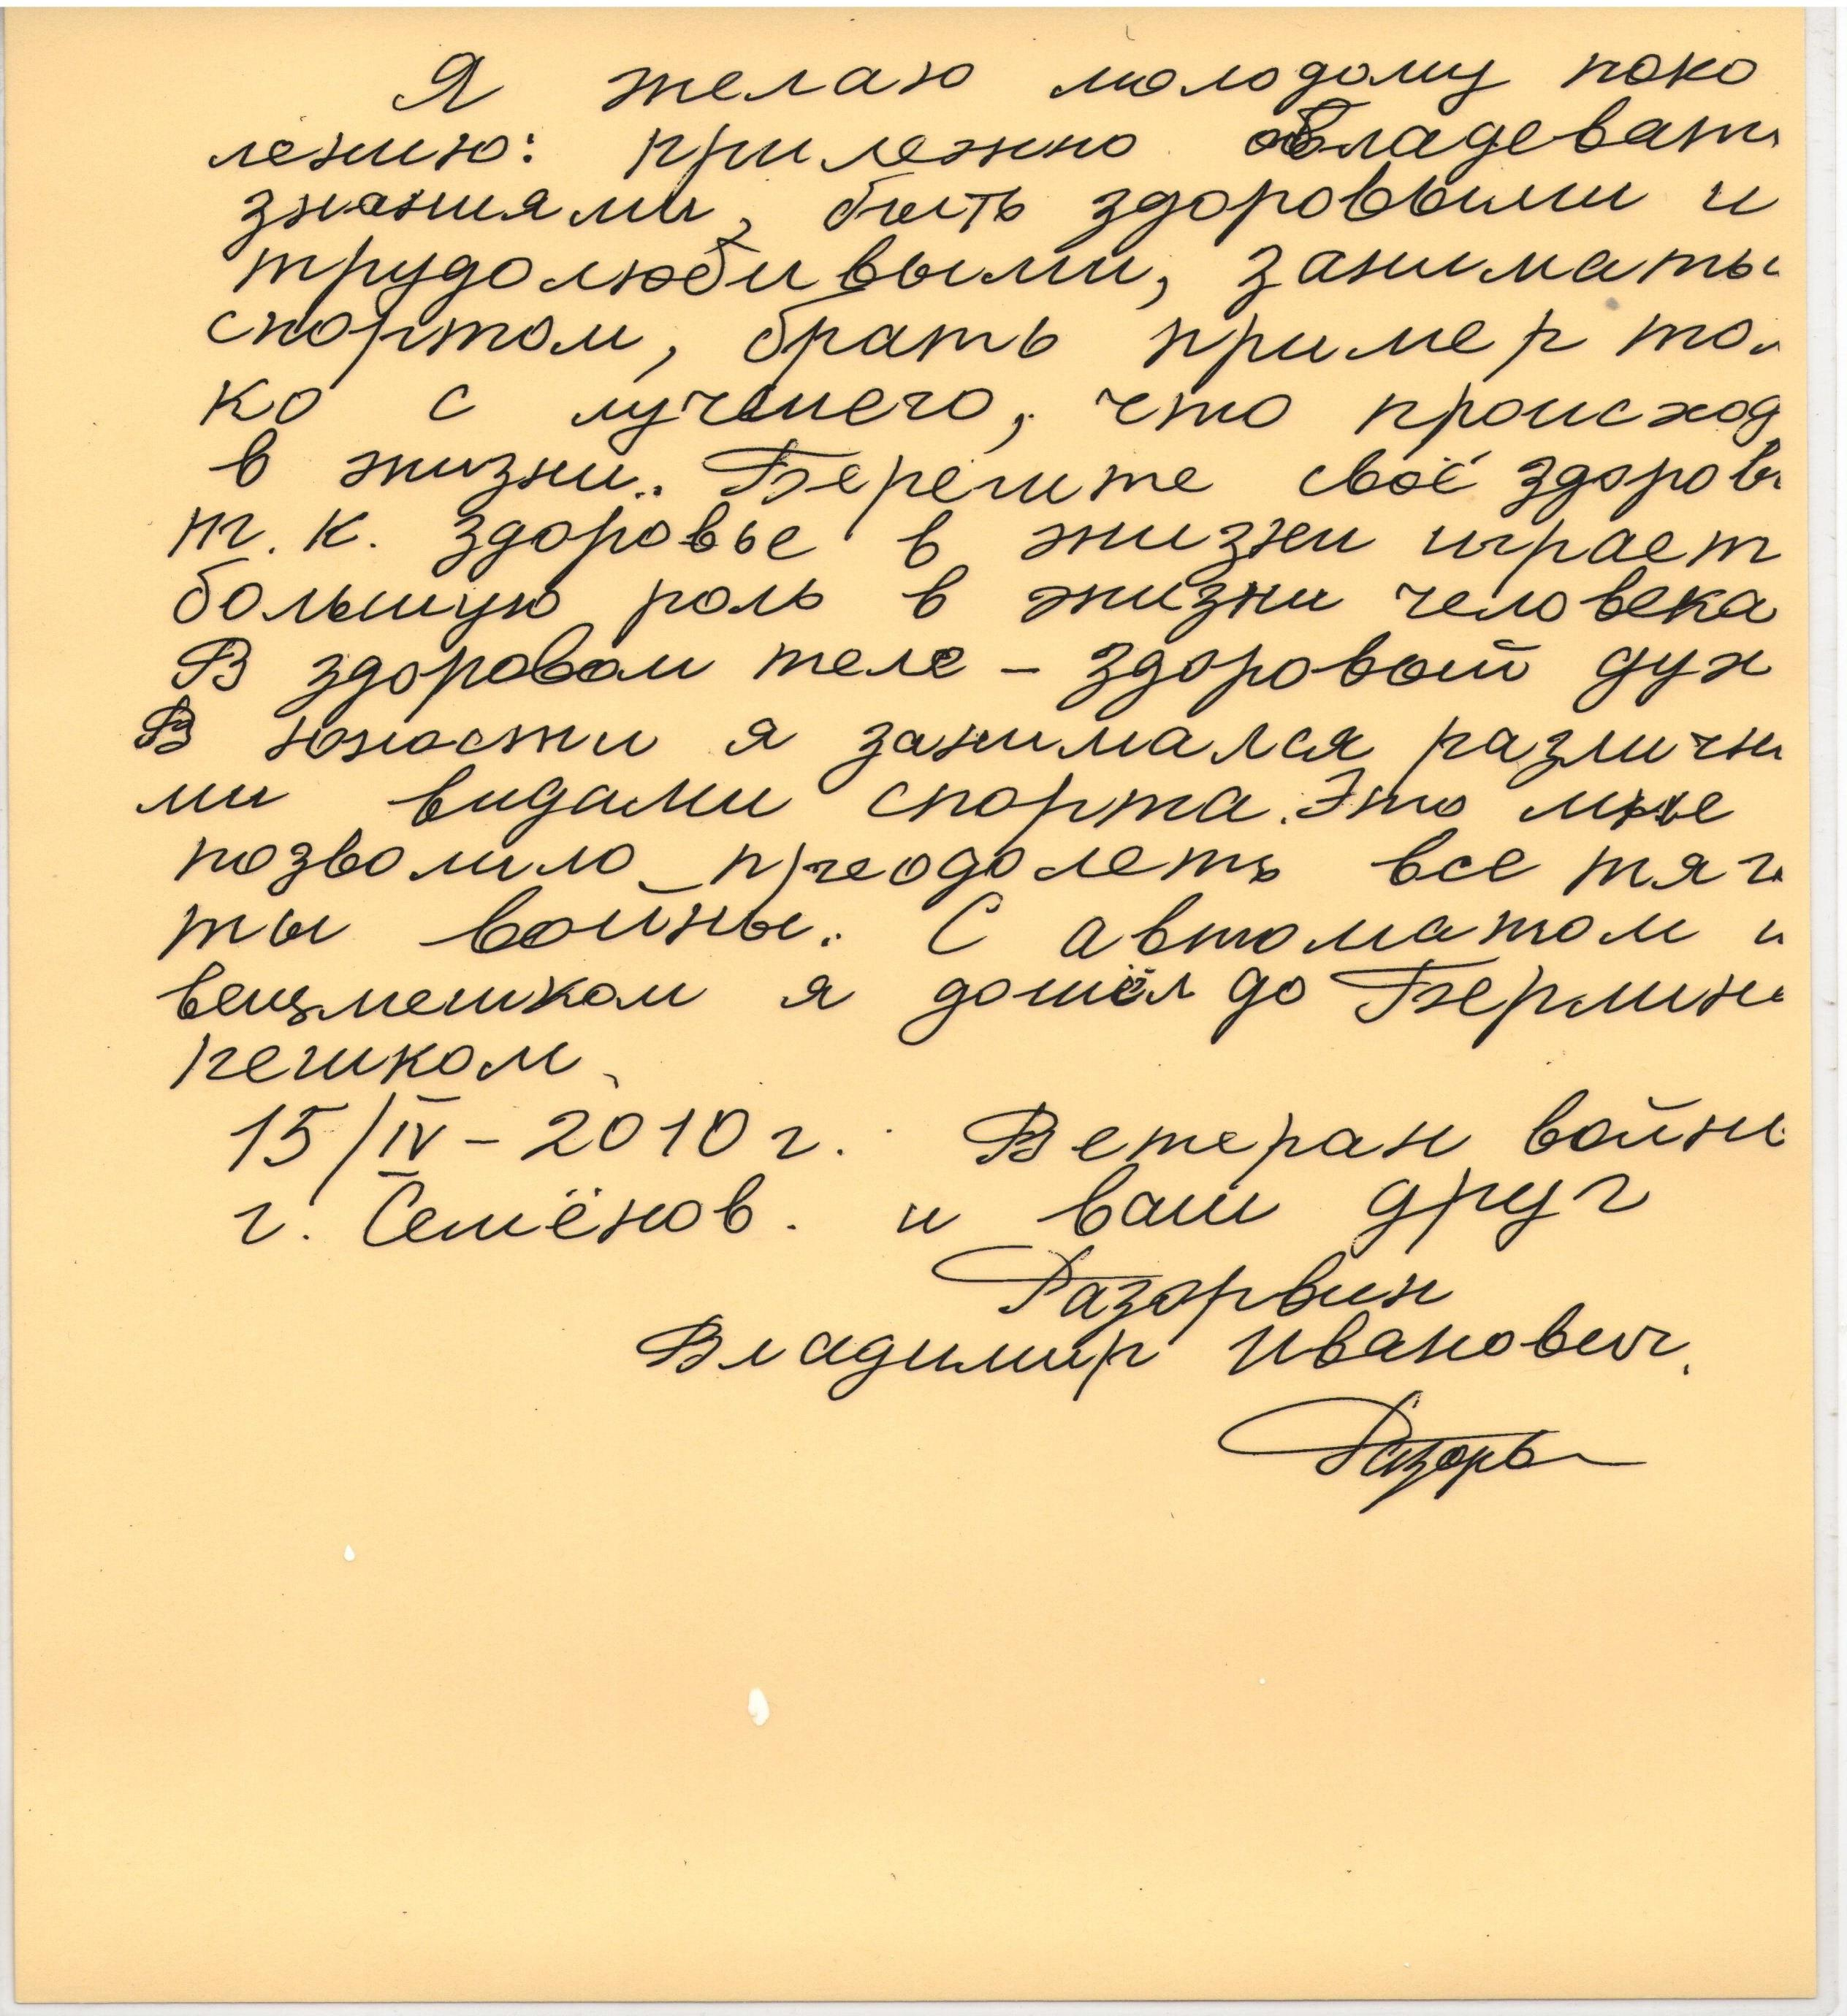 Я желаю молодому поко
лению: прилежно овладевать
знаниями, быть здоровыми и
трудолюбивыми, занимать
спортом, брать пример тол
ко с лучшего, что происход
в жизни. Берегите своё здоров
т. к. здоровье в жизни играет
большую роль в жизни человека
В здоровом теле – здоровый дух
В юности я занимался различн
ми видами спорта. Это мне
позволило преодолеть все тяг
ты войны. С автоматом и
вещмешком я дошёл до Берлина
пешком.
15/IV – 2010 г. Ветеран войны
г. Семёнов. и ваш друг
Разорвин
Владимир Иванович.
Разорв